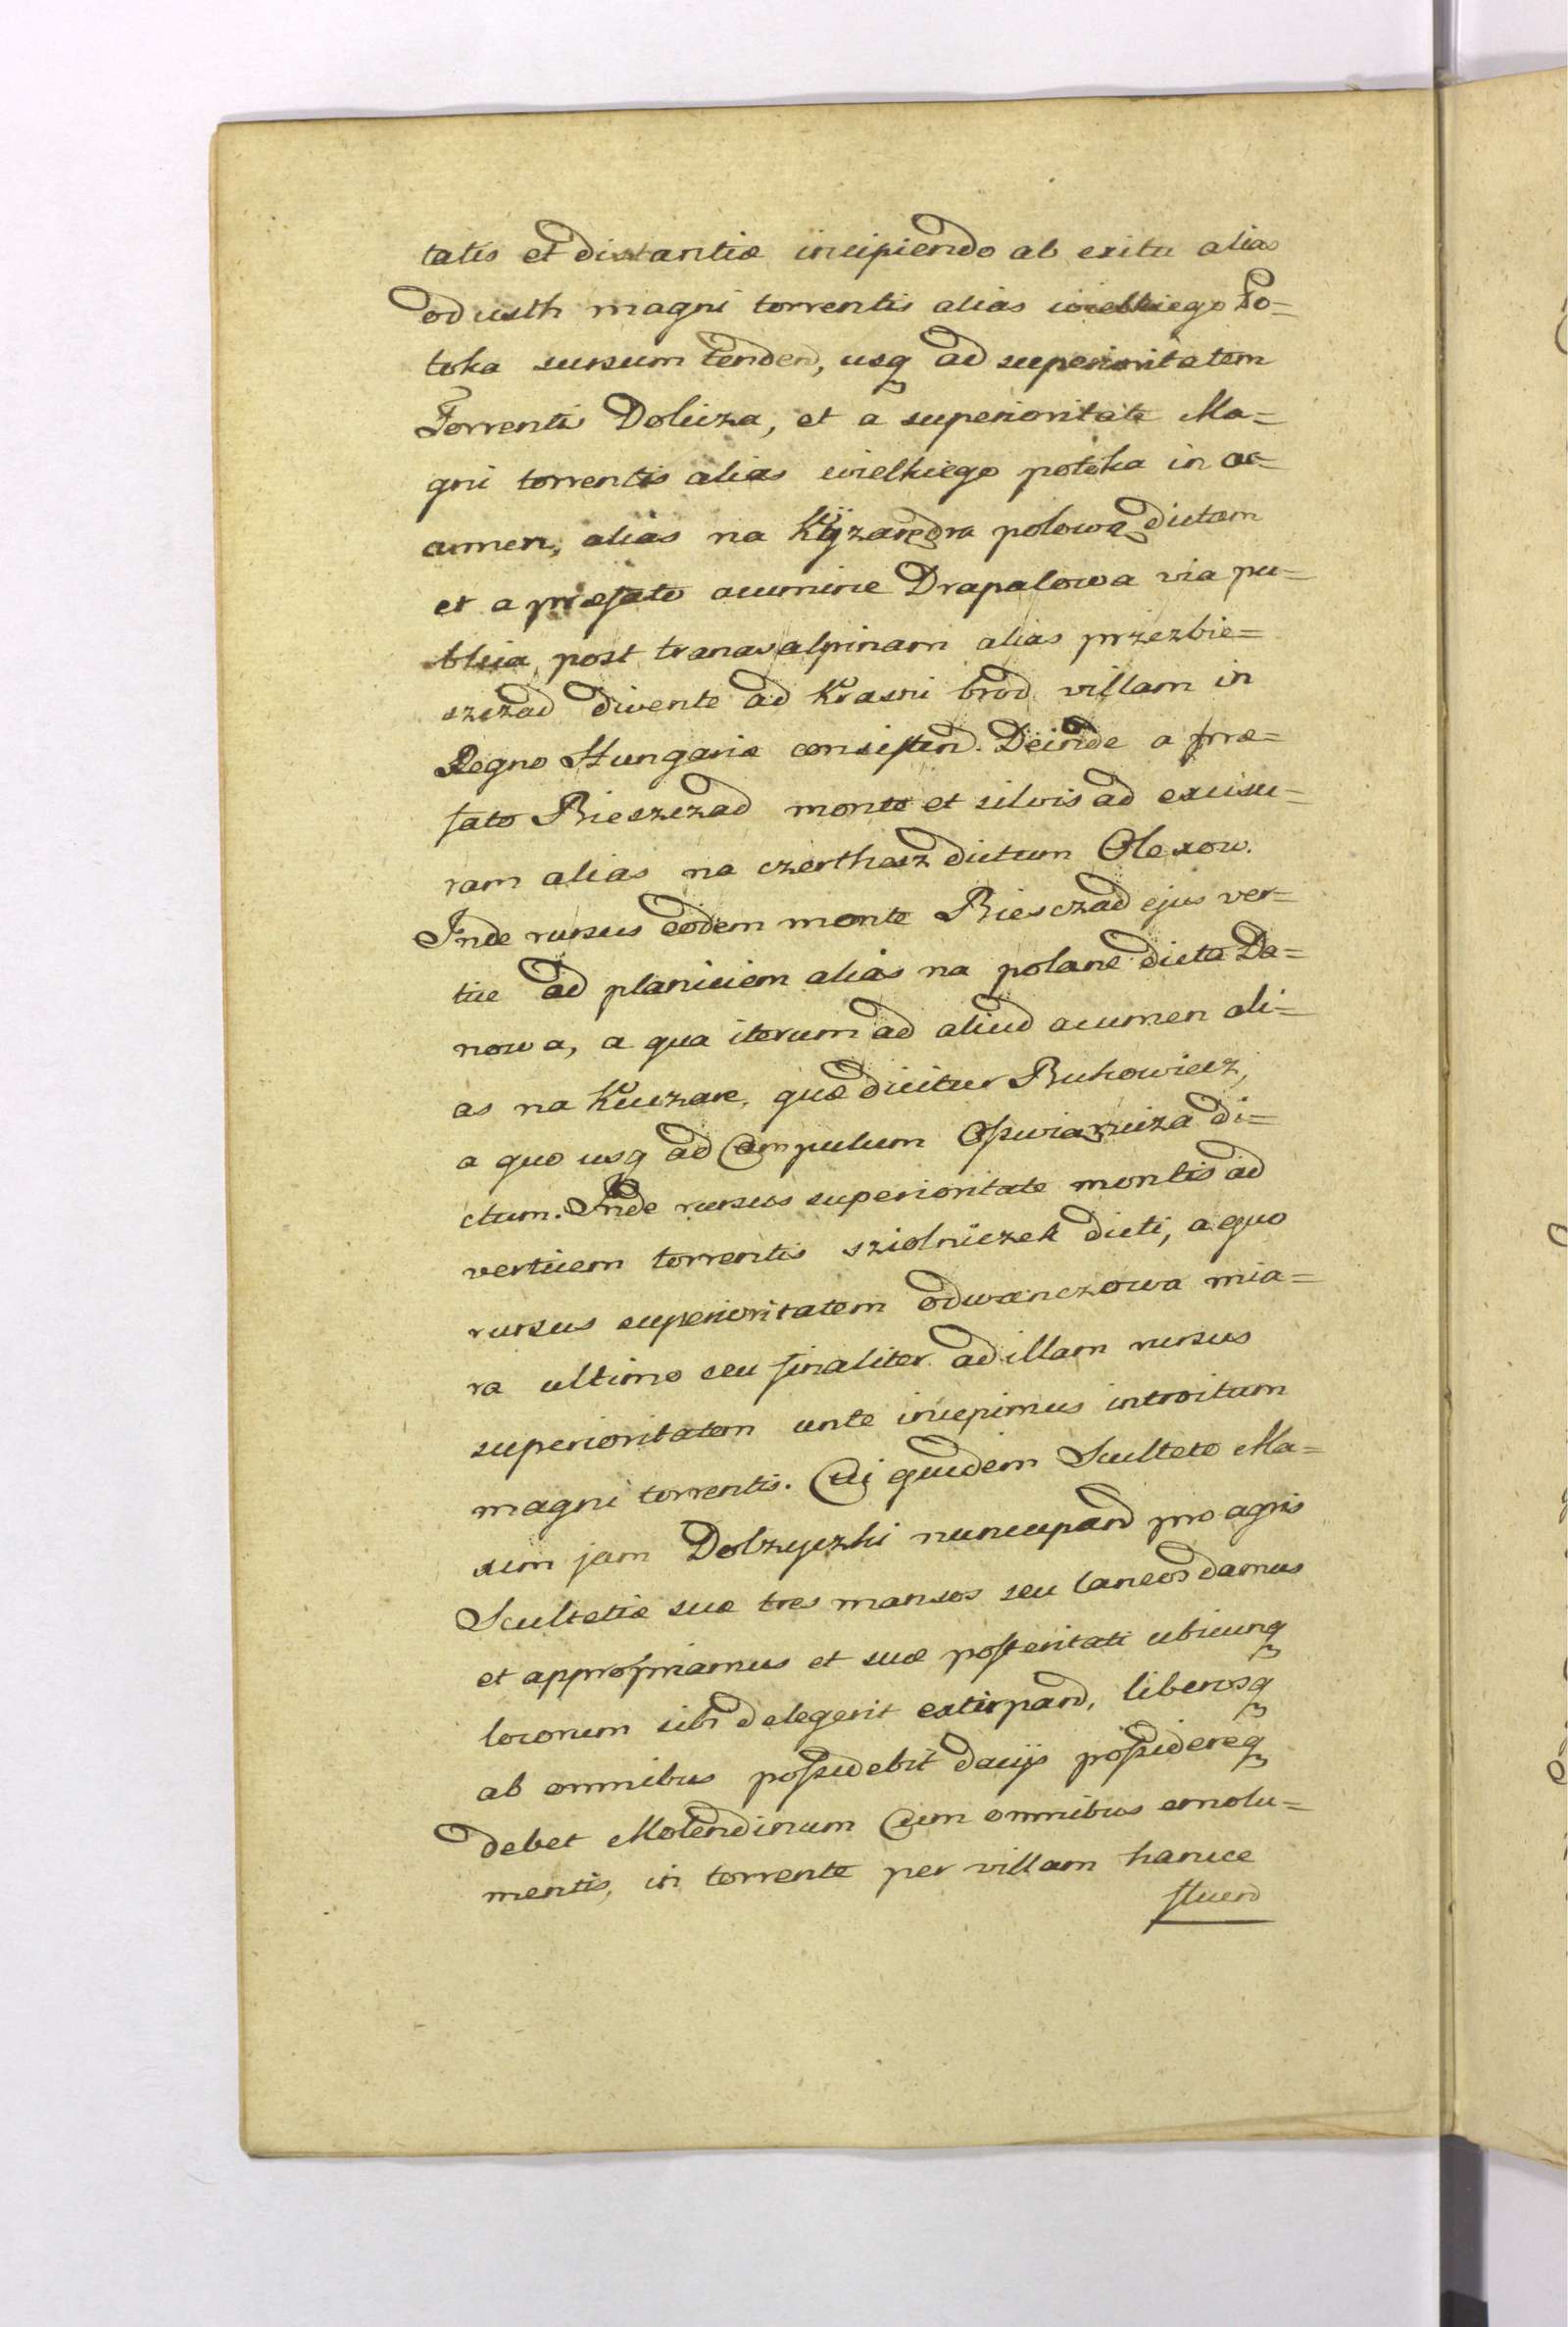 talis et distantiæ incipiendo ab exitu alias
od usth magni torrentis alias wielkiego Po=
toka sursum tenden, usq ad superioritatem
Torrentis Dolicza, et a superioritate Ma=
gni torrentis alias wielkiego potoka in ac=
cumen, alias na dra polowa dictam
et a præfato acumine Drapalowa via pu=
blica post transalpinam alias przezbie=
szczad divente ad Krasni brod villam in
Regno Hungariæ consisten. Deinde a præ=
fato Bieszczad monte et silvis ad excisu=
ram alias na czerthesz dictum Olexow.
Inde rursus eodem monte Biesczad ejus ver=
tice ad planiciem alias na polane dicta Da=
nowa, a qua iterum ad aliud acumen ali=
as na Kiczare, quæ dicitur Bukowiecz,
a quo usq ad Campulum di=
ctum. Inde rursus superioritate montis ad
verticem torrentis sziolniczek dicti, a quo
rursus superioritatem odwanczowa mia=
ra ultimo seu finaliter ad illam rursus
superioritatem unte incepimus introitum
magni torrentis. Cui quidem Sculteto Ma=
xim jam Dolzyczki nuncupand pro agris
Scultetiæ suæ tres mansos seu laneos damus
et appropriamus et suæ posteritati ubicunq
locorum sibi delegerit extirpand, liberosq
ab omnibus possidebit dacijs possidereq
debet Molendinum Cum omnibus emolu=
mentis, in torrente per villam hancce
fluen